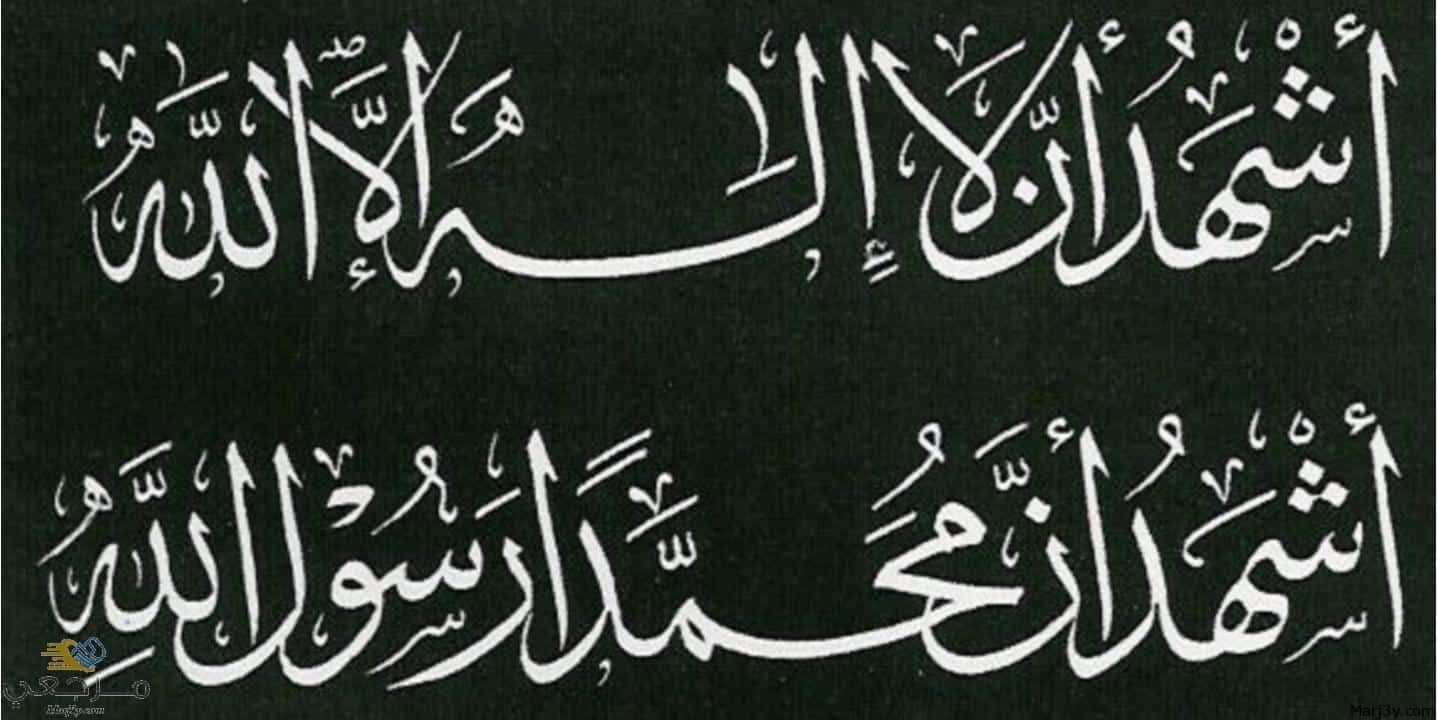 أَشْهَدُ أنَّ لَا إِلَٰهَ إِلَّا اللهُ
أَشْهَدُ أَنَّ مُحَمَّدًا رَسُوْلُ اللَّهِ
مرجعي
Marj3y.com
Marj3y.com